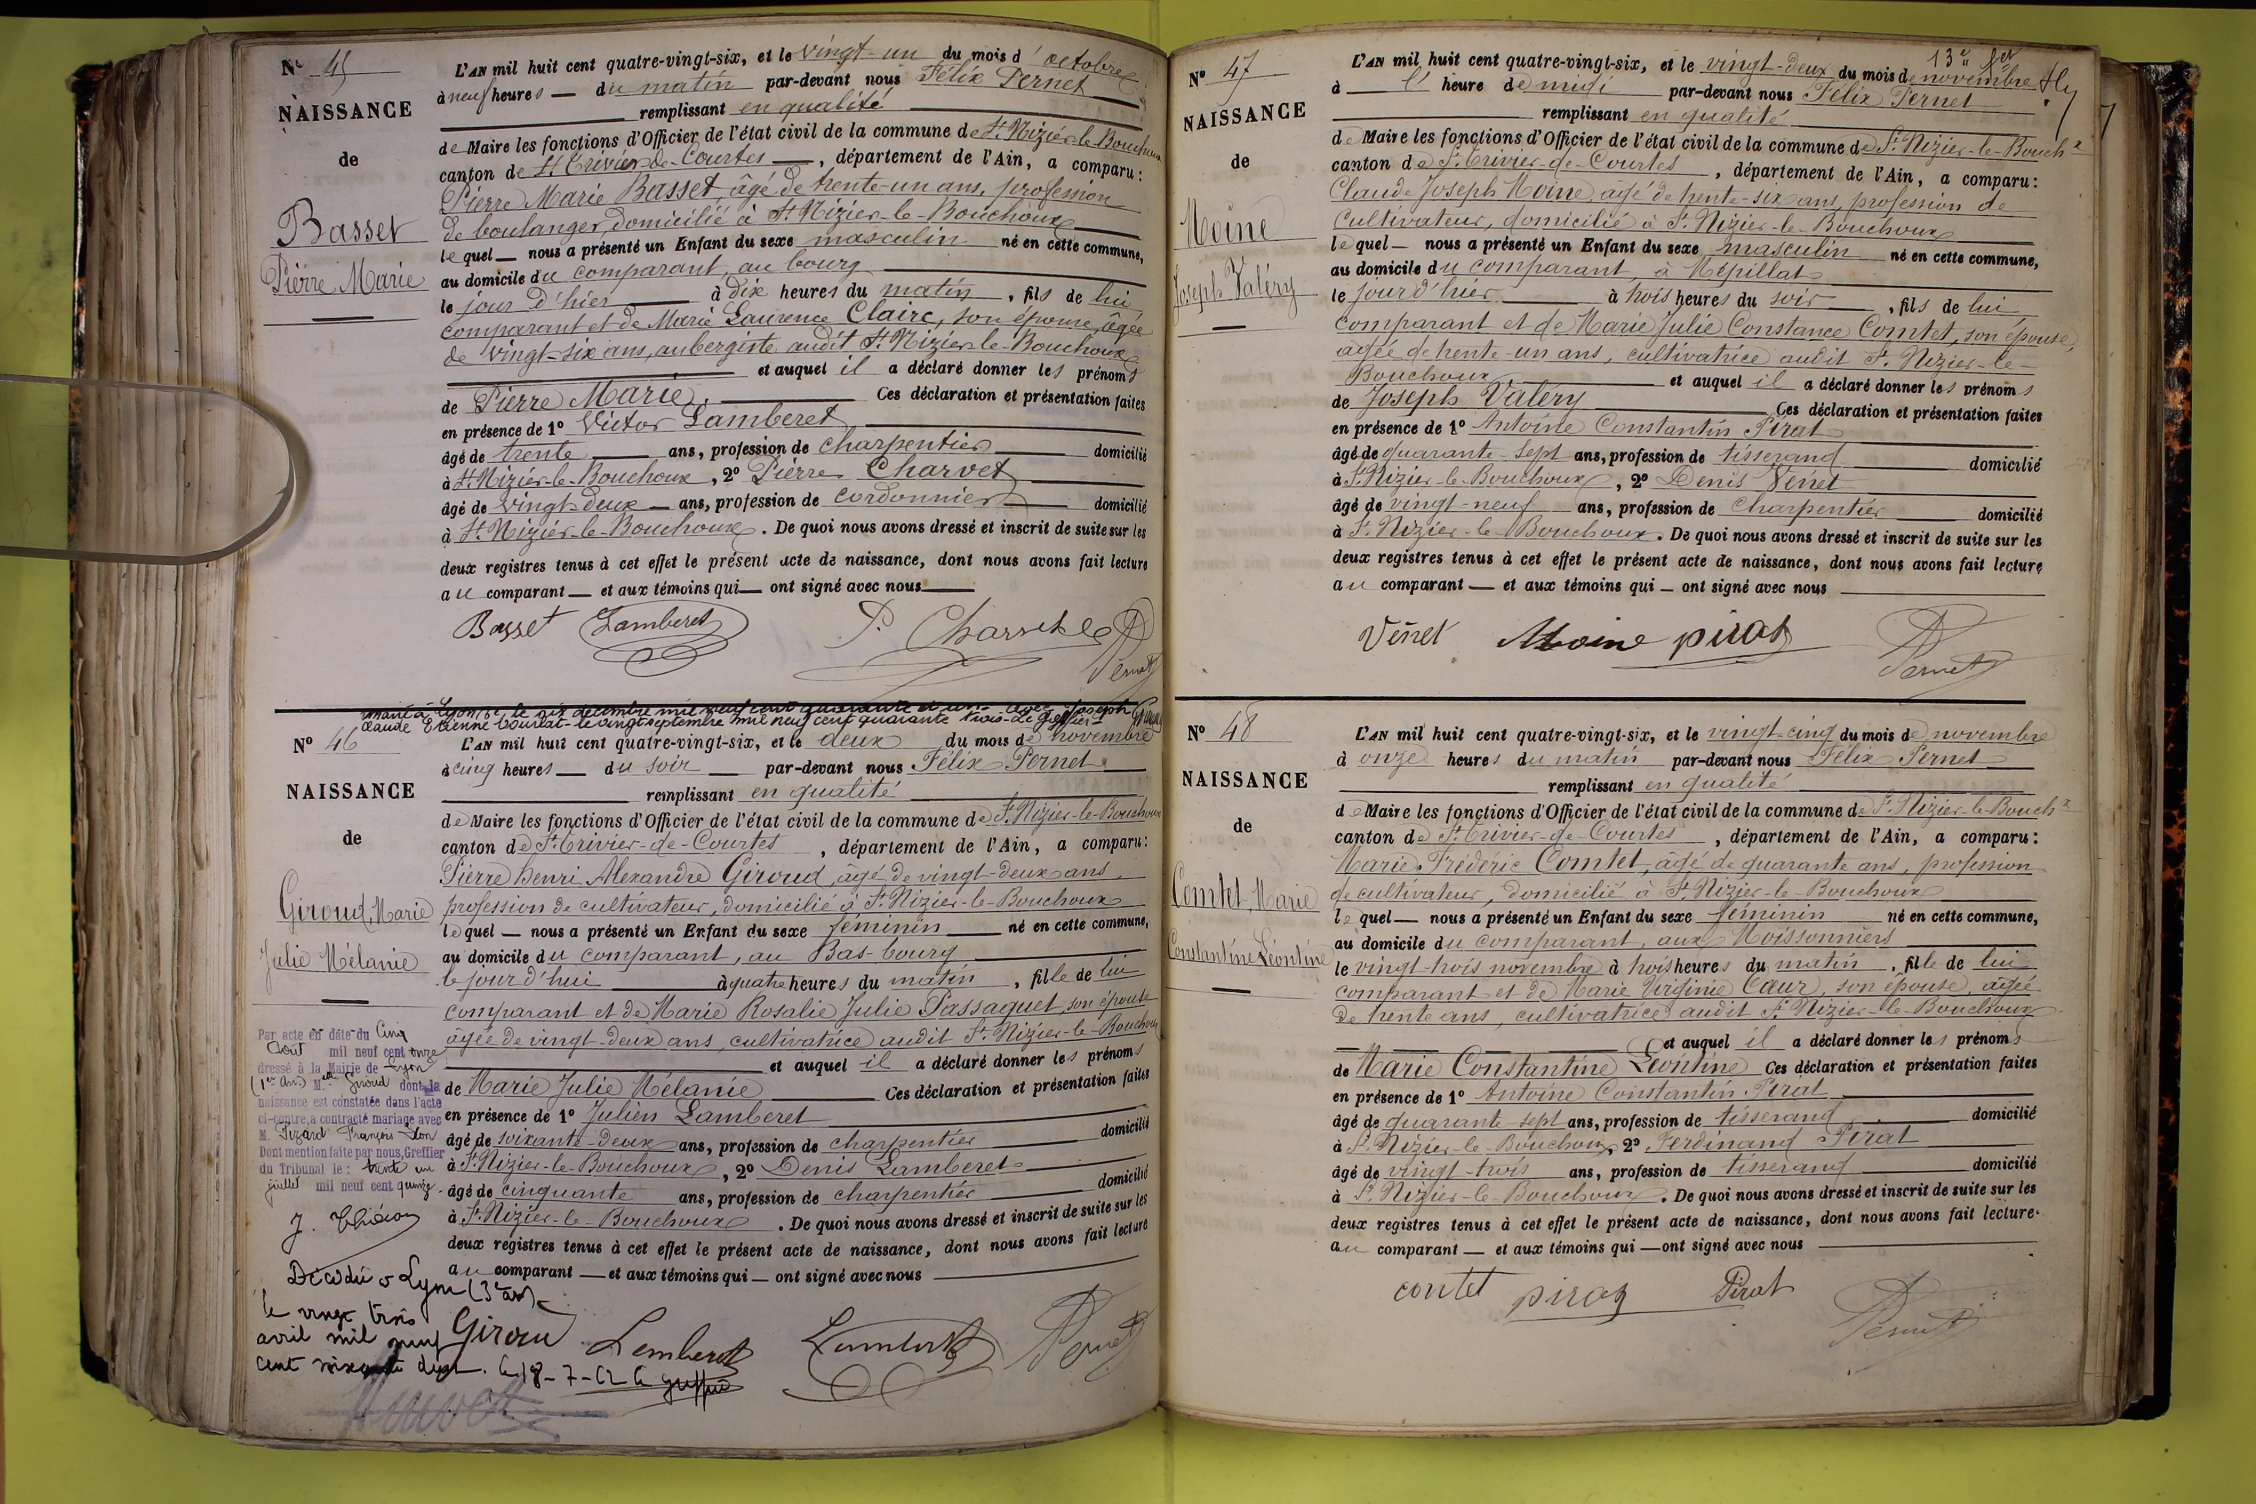 N° 45
NAISSANCE
de
Basset
Pierre Marie
L'AN mil huit cent quatre-vingt-six, et le vingt-un du mois d'octobre
à neuf heures — du matin par-devant nous Félix Pernet
remplissant en qualité
de Maire les fonctions d'Officier de l'état civil de la commune de St Nizier-le-Bouchoux
canton de St Trivier-de-Courtes —, département de l'Ain, a comparu:
Pierre Marie Basset, âgé de trente-un ans, profession
de boulanger, domicilié à St Nizier-le-Bouchoux
lequel — nous a présenté un Enfant du sexe masculin né en cette commune,
au domicile du comparant, au bourg
le jour d'hier à dix heures du matin, fils de lui
comparant et de Marie Laurence Claire, son épouse, âgée
de vingt-six ans, aubergiste audit St Nizier-le-Bouchoux
et auquel il a déclaré donner les prénoms
de Pierre Marie. Ces déclaration et présentation faites
en présence de 1° Victor Lamberet
âgé de trente ans, profession de charpentier domicilié
à St Nizier-le-Bouchoux, 2° Pierre Charvet
âgé de vingt-deux — ans, profession de cordonnier domicilié
à St Nizier-le-Bouchoux. De quoi nous avons dressé et inscrit de suite sur les
deux registres tenus à cet effet le présent acte de naissance, dont nous avons fait lecture
au comparant — et aux témoins qui — ont signé avec nous
Basset Lamberet P. Charvet
Pernet
marié à Lyon, 3e, le six décembre mil neuf cent quarante et un avec Joseph
Claude Etienne Courlat - le vingt septembre mil neuf cent quarante trois - Le Greffier
N° 46
NAISSANCE
de
Giroud, Marie
Julie Mélanie
L'AN mil huit cent quatre-vingt-six, et le deux du mois de novembre
à cinq heures — du soir — par-devant nous Félix Pernet
remplissant en qualité
de Maire les fonctions d'Officier de l'état civil de la commune de St Nizier-le-Bouchoux
canton de St Trivier-de-Courtes, département de l'Ain, a comparu:
Pierre Henri Alexandre Giroud, âgé de vingt-deux ans,
profession de cultivateur, domicilié à St Nizier-le-Bouchoux
lequel — nous a présenté un Enfant du sexe féminin né en cette commune,
au domicile du comparant, au Bas-bourg
le jour d'hui à quatre heures du matin, fille de lui
comparant et de Marie Rosalie Julie Passaquet, son épouse
âgée de vingt-deux ans, cultivatrice audit St Nizier-le-Bouchoux
et auquel il a déclaré donner les prénoms
de Marie Julie Mélanie Ces déclaration et présentation faites
en présence de 1° Julien Lamberet
âgé de soixante-deux ans, profession de charpentier domicilié
à St Nizier-le-Bouchoux, 2° Denis Lamberet
âgé de cinquante ans, profession de charpentier domicilié
à St Nizier-le-Bouchoux. De quoi nous avons dressé et inscrit de suite sur les
deux registres tenus à cet effet le présent acte de naissance, dont nous avons fait lecture
au comparant — et aux témoins qui — ont signé avec nous
Par acte en date du Cinq
Août mil neuf cent onze
dressé à la Mairie de Lyon
(1er Arr) Melle Giroud dont la
naissance est constatée dans l'acte
ci-contre, a contracté mariage avec
M. Pizard François Léon
Dont mention faite par nous, Greffier
du Tribunal le: trente un
juillet mil neuf cent quinze.
Décédée à Lyon (3e arr)
le vingt trois
avril mil neuf
cent soixante deux. Le 18-7-62 le greffier
Girou Lamberet Lamberet Pernet
13e
N° 47
NAISSANCE
de
Moine
Joseph Valéry
L'AN mil huit cent quatre-vingt-six, et le vingt-deux du mois de novembre
à l' heure de midi par-devant nous Félix Pernet
remplissant en qualité
de Maire les fonctions d'Officier de l'état civil de la commune de St Nizier-le-Bouchx
canton de St Trivier-de-Courtes, département de l'Ain, a comparu:
Claude Joseph Moine, âgé de trente-six ans, profession de
cultivateur, domicilié à St Nizier-le-Bouchoux
lequel — nous a présenté un Enfant du sexe masculin né en cette commune,
au domicile du comparant, à Mépillat
le jour d'hier à trois heures du soir, fils de lui
comparant et de Marie Julie Constance Comtet, son épouse,
âgée de trente-un ans, cultivatrice audit St Nizier-le-
Bouchoux et auquel il a déclaré donner les prénoms
de Joseph Valéry Ces déclaration et présentation faites
en présence de 1° Antoine Constantin Pirat
âgé de quarante-sept ans, profession de tisserand domicilié
à St Nizier-le-Bouchoux, 2° Denis Venet
âgé de vingt-neuf ans, profession de charpentier domicilié
à St Nizier-le-Bouchoux. De quoi nous avons dressé et inscrit de suite sur les
deux registres tenus à cet effet le présent acte de naissance, dont nous avons fait lecture
au comparant — et aux témoins qui — ont signé avec nous
Venet Moine pirat
Pernet
N° 48
NAISSANCE
de
Comtet, Marie
Constantine Léontine
L'AN mil huit cent quatre-vingt-six, et le vingt-cinq du mois de novembre
à onze heures du matin par-devant nous Félix Pernet
remplissant en qualité
de Maire les fonctions d'Officier de l'état civil de la commune de St Nizier-le-Bouchx
canton de St Trivier-de-Courtes, département de l'Ain, a comparu:
Marie Frédéric Comtet, âgé de quarante ans, profession
de cultivateur, domicilié à St Nizier-le-Bouchoux
lequel — nous a présenté un Enfant du sexe féminin né en cette commune,
au domicile du comparant, aux Moissonniers
le vingt-trois novembre à trois heures du matin, fille de lui
comparant et de Marie Virginie Cœur, son épouse, âgée
de trente ans, cultivatrice audit St Nizier-le-Bouchoux
et auquel il a déclaré donner les prénoms
de Marie Constantine Léontine Ces déclaration et présentation faites
en présence de 1° Antoine Constantin Pirat
âgé de quarante-sept ans, profession de tisserand domicilié
à St Nizier-le-Bouchoux, 2° Ferdinand Pirat
âgé de vingt-trois ans, profession de tisserand domicilié
à St Nizier-le-Bouchoux. De quoi nous avons dressé et inscrit de suite sur les
deux registres tenus à cet effet le présent acte de naissance, dont nous avons fait lecture
au comparant — et aux témoins qui — ont signé avec nous
contet pirat Pirat
Pernet